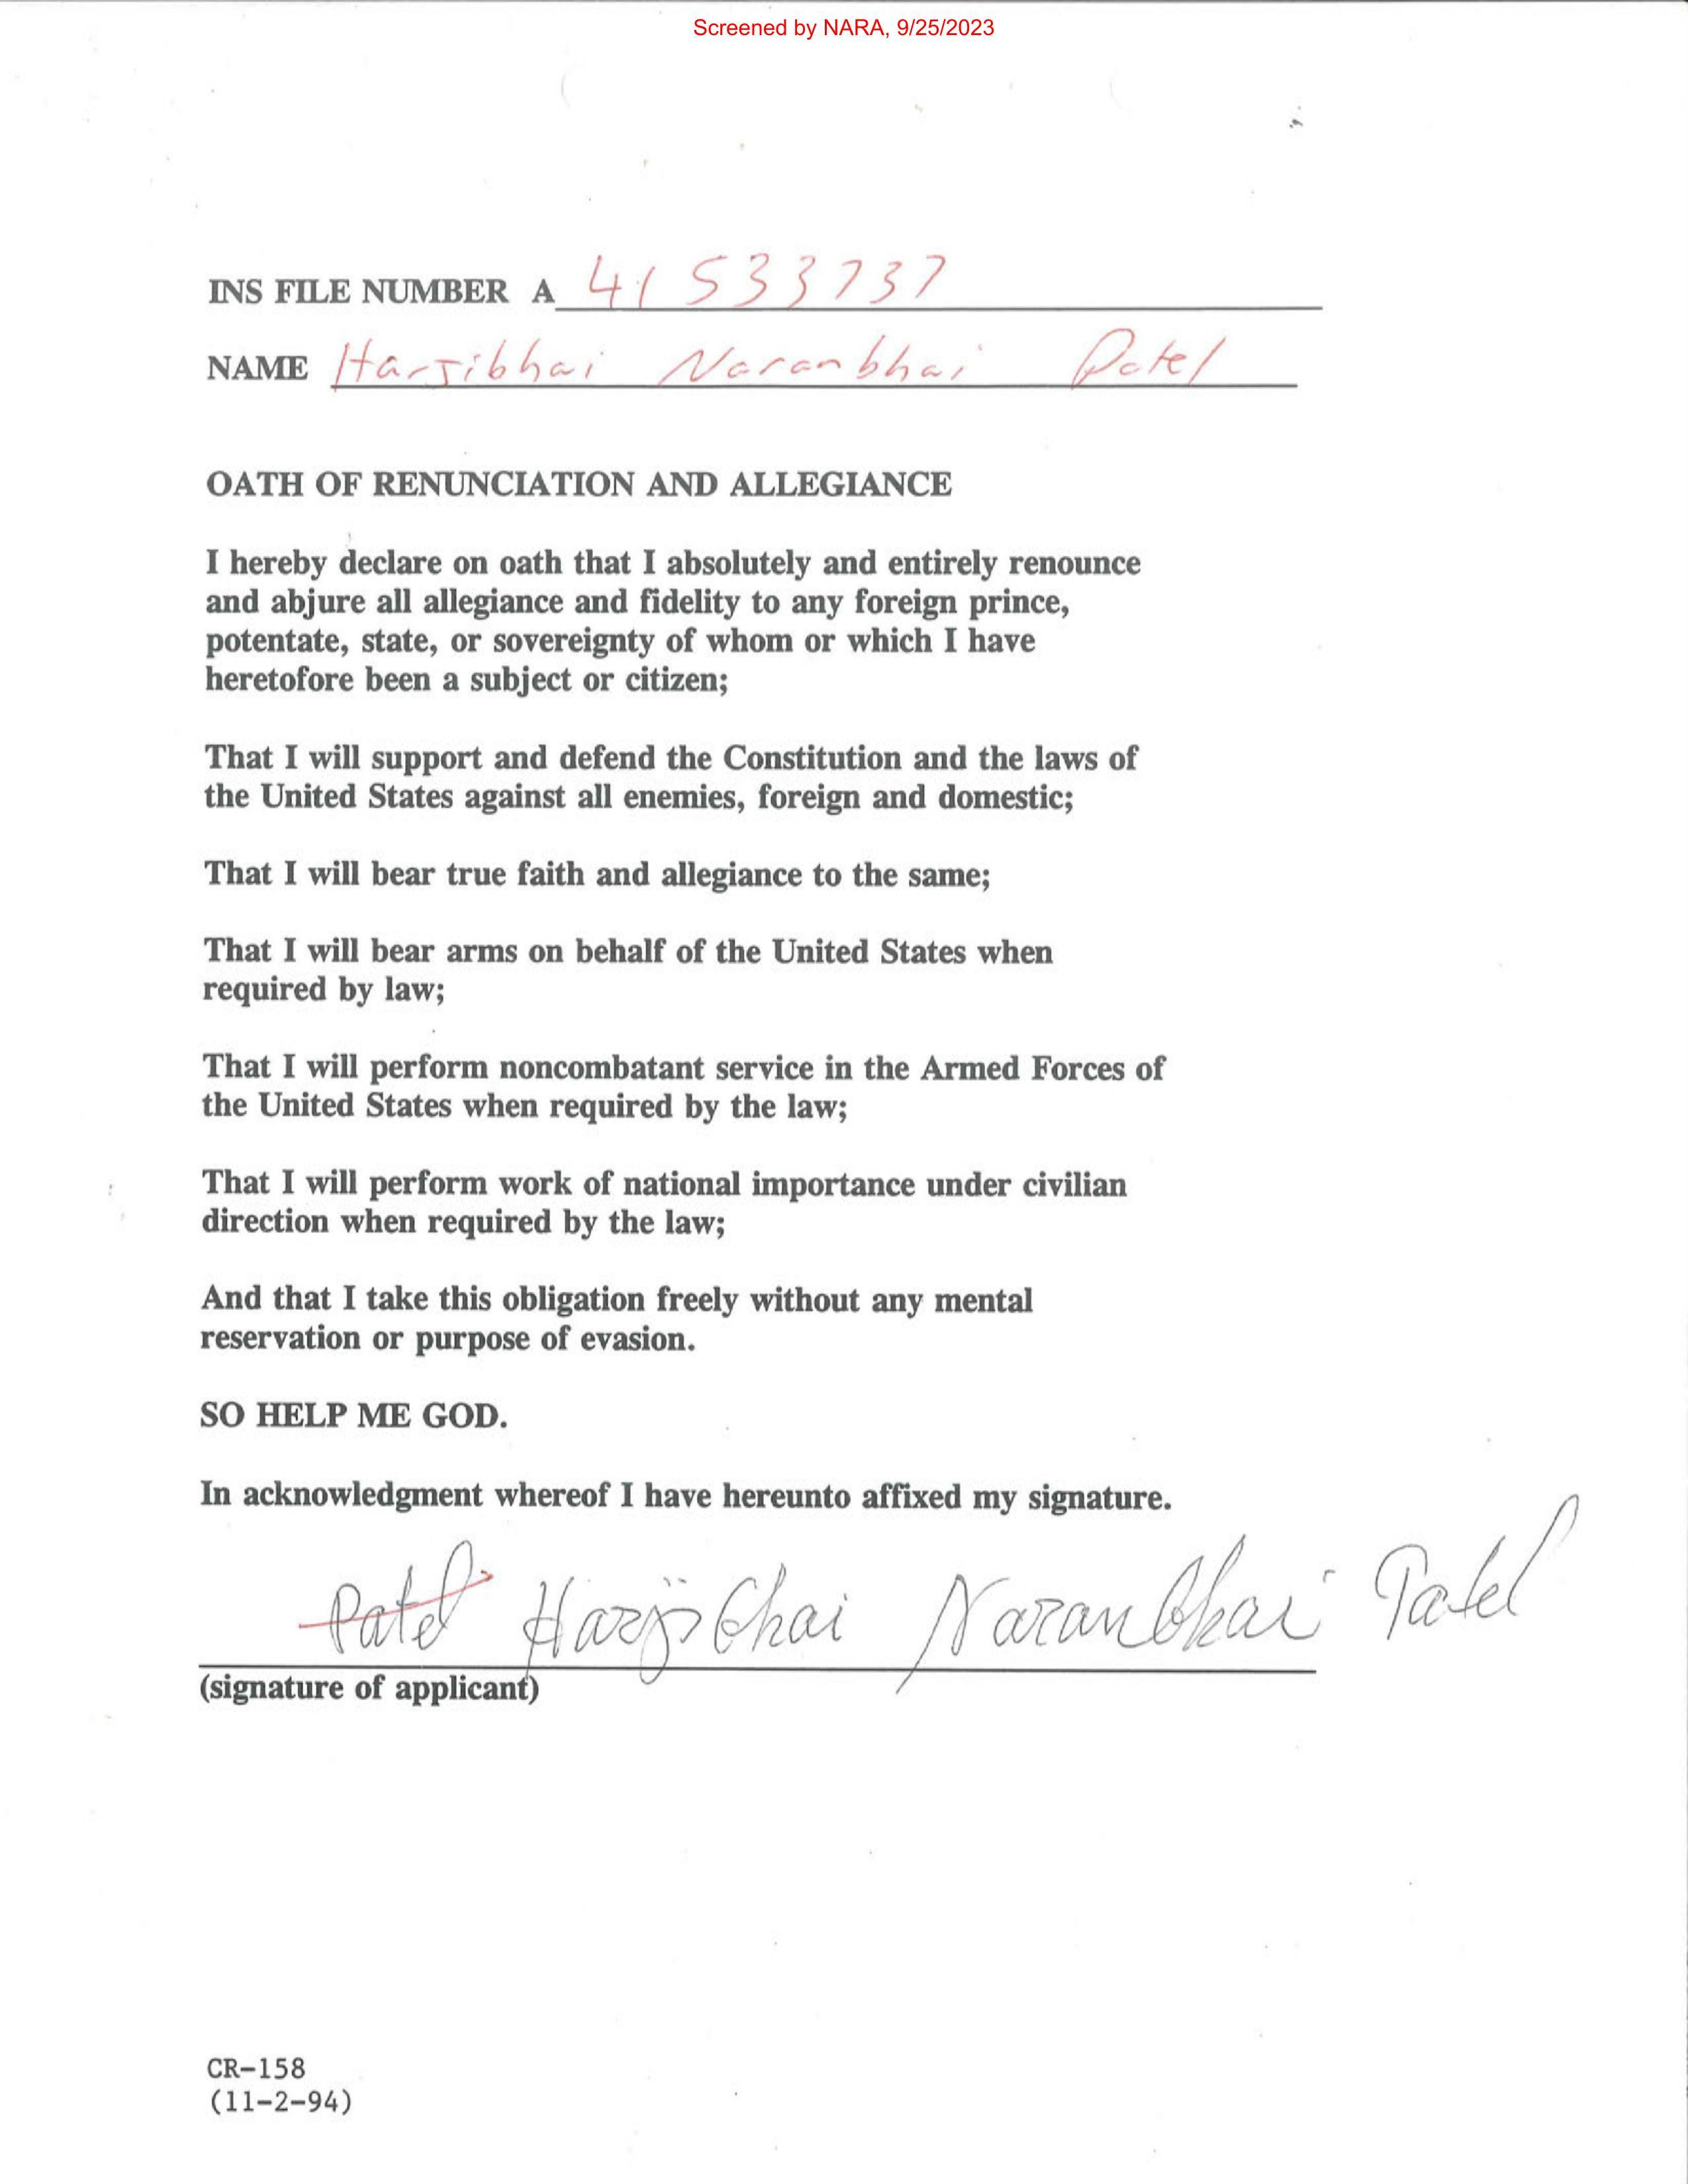 Screened by NARA, 9/25/2023
INS FILE NUMBER A 41 533737
NAME Harjibhai Naranbhai Patel
OATH OF RENUNCIATION AND ALLEGIANCE
I hereby declare on oath that I absolutely and entirely renounce
and abjure all allegiance and fidelity to any foreign prince,
potentate, state, or sovereignty of whom or which I have
heretofore been a subject or citizen;
That I will support and defend the Constitution and the laws of
the United States against all enemies, foreign and domestic;
That I will bear true faith and allegiance to the same;
That I will bear arms on behalf of the United States when
required by law;
That I will perform noncombatant service in the Armed Forces of
the United States when required by the law;
That I will perform work of national importance under civilian
direction when required by the law;
And that I take this obligation freely without any mental
reservation or purpose of evasion.
SO HELP ME GOD.
In acknowledgment whereof I have hereunto affixed my signature.
Patel Harjibhai Naranbhai Patel
(signature of applicant)
CR-158
(11-2-94)